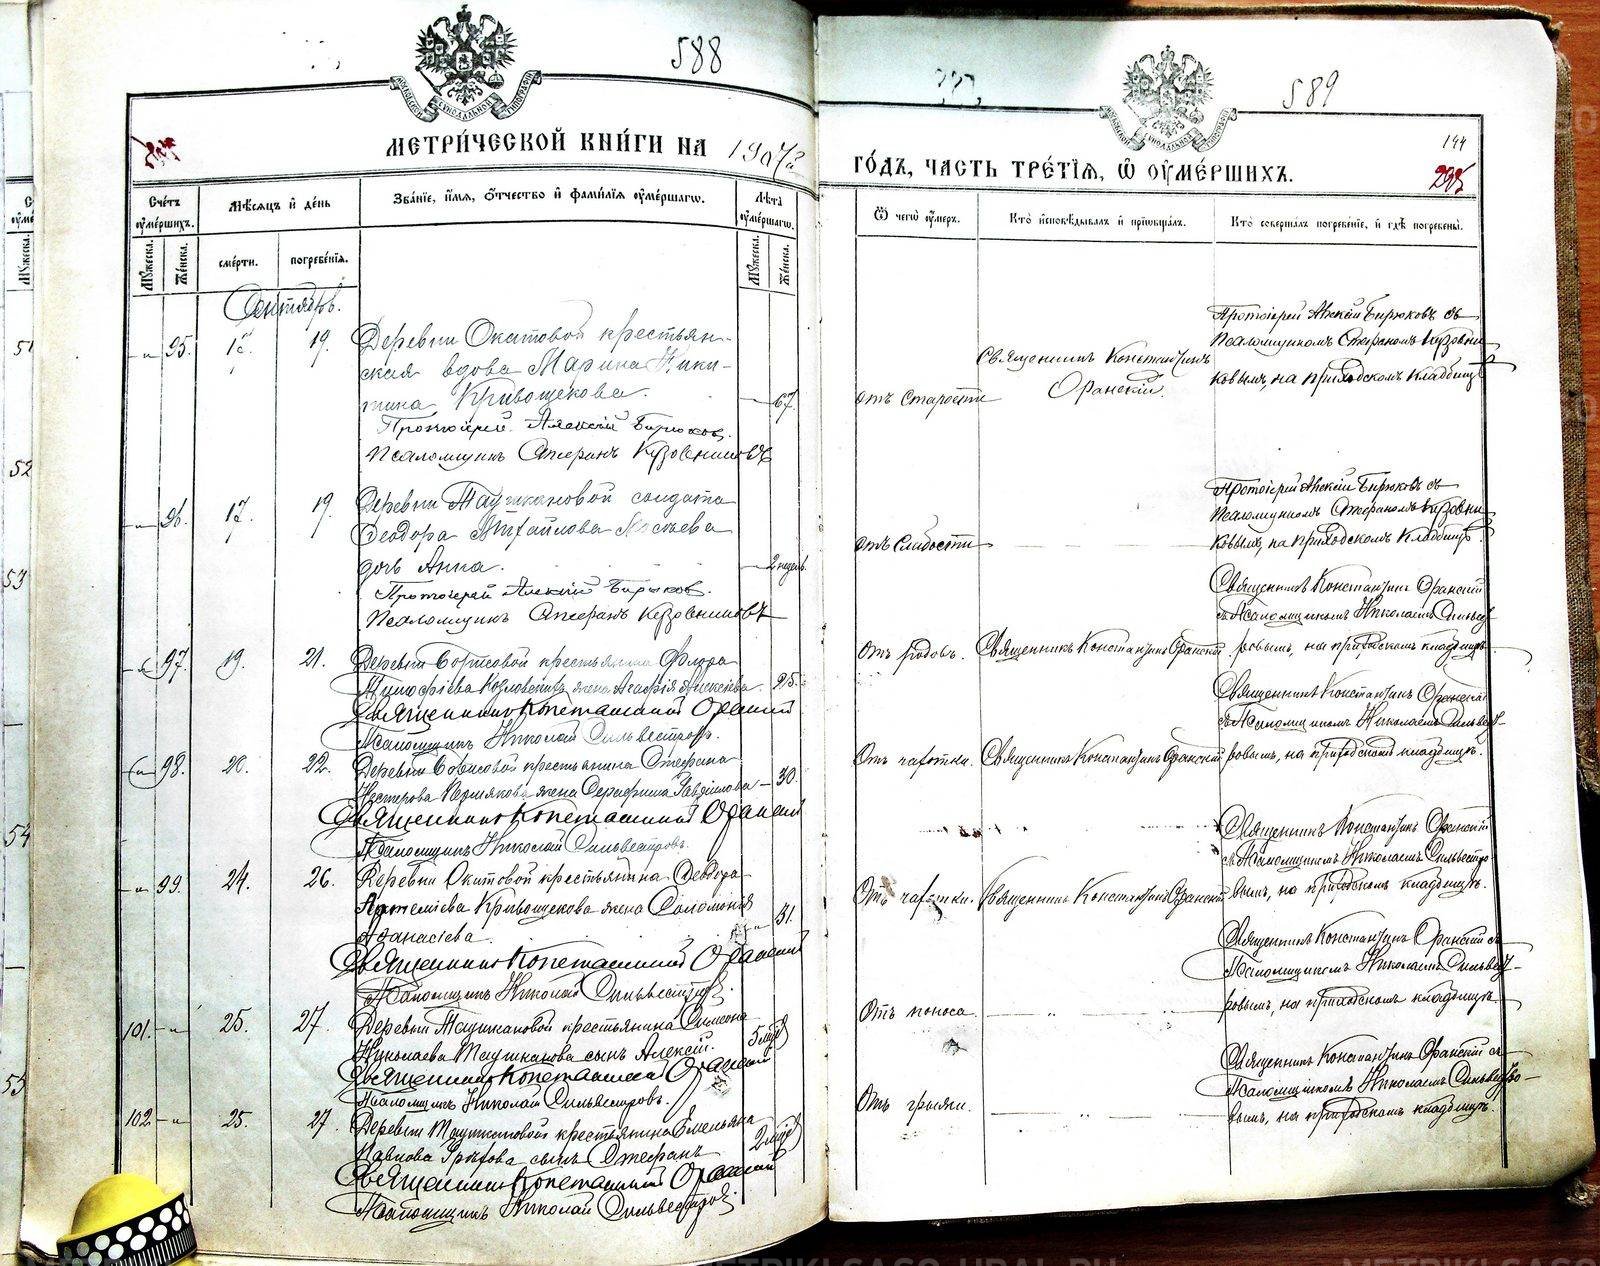 588
МЕТРИЧЕСКОЙ КНИГИ НА 1907й
Счетъ умершихъ.
Мѣсяцъ и день
Званіе, имя, отчество и фамилія умершаго.
Лѣта умершаго.
Мужеска.
Женска.
смерти.
погребенія.
Мужеска.
Женска.
Сентябрь.
95. 17. 19. Деревни Окатовой крестьян-
ская вдова Марина Ники-
тина Кривощекова. 67.
Протоіерей Алексій Бирюковъ.
Псаломщикъ Стефанъ Кузовниковъ
96. 17. 19. Деревни Таушкановой солдата
Ѳеодора Михайлова
дочь Анна. 2 недѣль.
Протоіерей Алексій Бирюковъ.
Псаломщикъ Стефанъ Кузовниковъ
97. 19. 21. Деревни Борисовой крестьянина Флора
Тимофѣева жена Агафія Алексѣева. 25.
Священникъ Константинъ Оранскій
Псаломщикъ Николай Сильвестровъ.
98. 20. 22. Деревни Борисовой крестьянина Стефана
Нестерова Пермякова жена Серафима Гавріилова 30.
Священникъ Константинъ Оранскій
Псаломщикъ Николай Сильвестровъ.
99. 24. 26. Деревни Окатовой крестьянина Ѳеодора
Артеміева Кривощекова жена Соломонія
Аѳанасіева. 31.
Священникъ Константинъ Оранскій
Псаломщикъ Николай Сильвестровъ.
101. 25. 27. Деревни Таушкановой крестьянина Симеона
Николаева Таушканова сынъ Алексій. 5 мѣс.
Священникъ Константинъ Оранскій
Псаломщикъ Николай Сильвестровъ.
102 25. 27. Деревни Таушкановой крестьянина Емельяна
Павлова сынъ Стефанъ 2 мѣс.
Священникъ Константинъ Оранскій
Псаломщикъ Николай Сильвестровъ
589
144
295
ГОДЪ, ЧАСТЬ ТРЕТІЯ, Ѡ УМЕРШИХЪ.
Ѿ чегѡ умеръ.
Кто исповѣдывалъ и пріобщалъ.
Кто совершалъ погребеніе, и гдѣ погребены.
отъ старости
Священникъ Константинъ
Оранскій.
Протоіерей Алексій Бирюковъ съ
Псаломщикомъ Стефаномъ Кузовни-
ковымъ, на приходскомъ кладбищѣ
отъ слабости
Протоіерей Алексій Бирюковъ съ
Псаломщикомъ Стефаномъ Кузовни-
ковымъ, на приходскомъ кладбищѣ.
Отъ родовъ. Священникъ Константинъ Оранскій
Священникъ Константинъ Оранскій
съ Псаломщикомъ Николаемъ Сильвест-
ровымъ, на приходскомъ кладбищѣ.
Отъ чахотки. Священникъ Константинъ Оранскій
Священникъ Константинъ Оранскій
съ Псаломщикомъ Николаемъ Сильвест-
ровымъ, на приходскомъ кладбищѣ.
Отъ чахотки. Священникъ Константинъ Оранскій
Священникъ Константинъ Оранскій
съ Псаломщикомъ Николаемъ Сильвестро-
вымъ, на приходскомъ кладбищѣ.
Отъ поноса.
Священникъ Константинъ Оранскій съ
Псаломщикомъ Николаемъ Сильвест-
ровымъ, на приходскомъ кладбищѣ
Отъ грыжи.
Священникъ Константинъ Оранскій съ
Псаломщикомъ Николаемъ Сильвестро-
вымъ, на приходскомъ кладбищѣ.
51
52
53
54
55